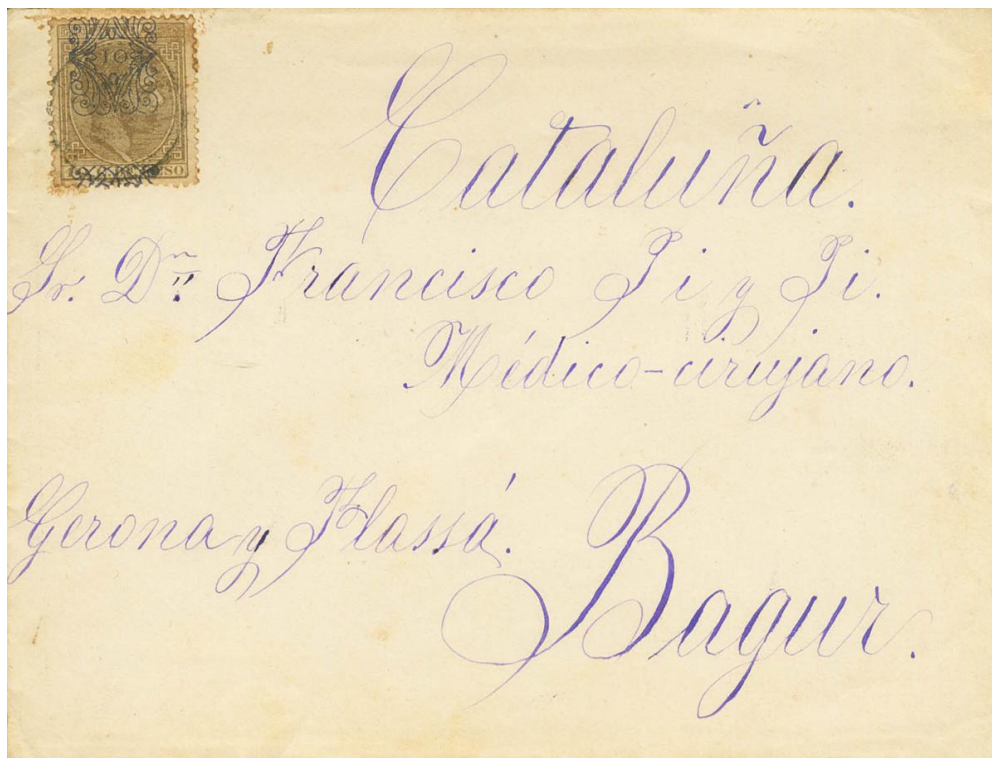 10
10 C. DE PESO
Cataluña.
Sr. Dn. Francisco Pi y Pi.
Médico-cirujano.
Gerona y Flassá.
Bagur.